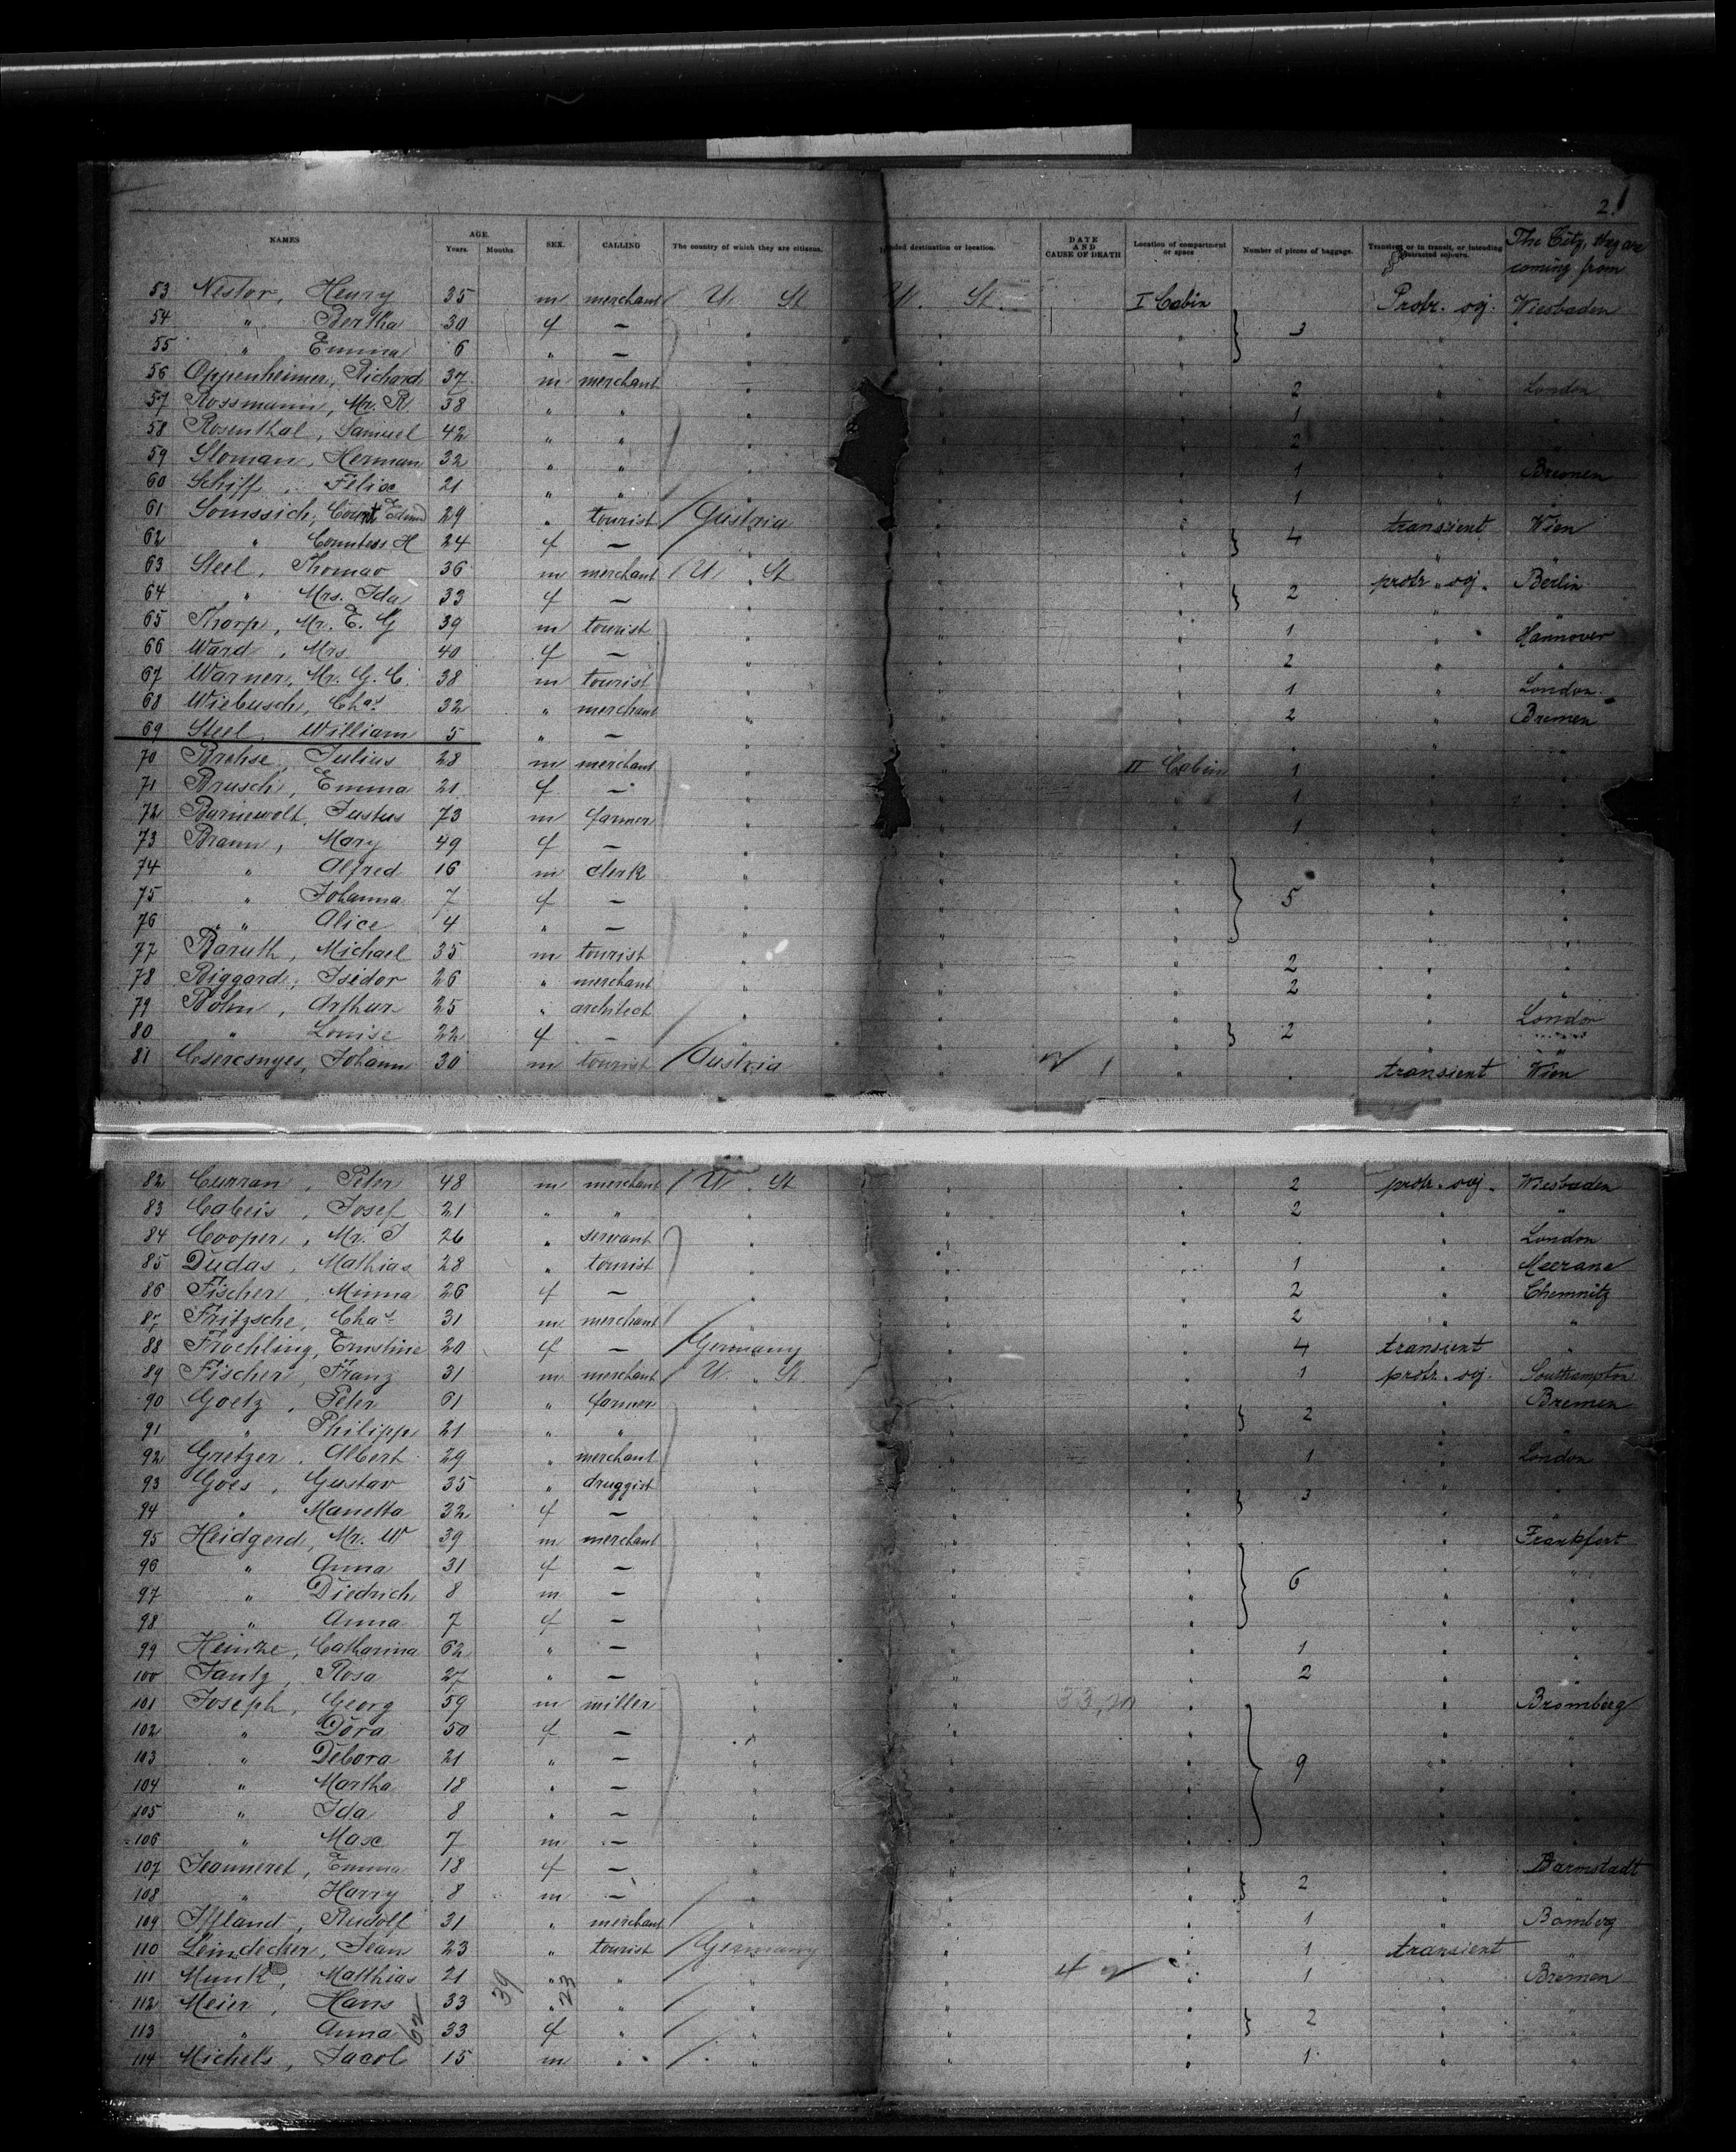 2.
NAMES AGE. Years. Months. SEX. CALLING The country of which they are citizens. destination or location. DATE AND CAUSE OF DEATH Location of compartment or space Number of pieces of baggage. Transient or in transit, or intending protracted sojourn. The City, they are coming from
53 Nestor, Henry 35 m merchant U. St U. St. I Cabin Protr. soj. Wiesbaden
54 " Bertha 30 f — "
55 " Emma 6 " — " 3
56 Oppenheimer, Richard 37 m merchant " 2 " London
57 Rossmann, Mr. R. 38 " " " 1
58 Rosenthal, Samuel 42 " " " 2
59 Sloman, Herman 32 " " " 1 " Bremen
60 Schiff, Felix 21 " " " 1 " "
61 Somssich, Count 29 " tourist Austria " transient Wien
62 " Countess H 24 f — " 4 " "
63 Steel, Thomas 36 m merchant U. St " protr. soj. Berlin
64 " Mrs. Ida 33 f — " 2 " "
65 Thorp, Mr. E. G 39 m tourist " 1 " Hannover
66 Ward, Mrs 40 f — " 2 " "
67 Warner, Mr. G. C. 38 m tourist " 1 " London
68 Wiebusch, Chas. 32 " merchant " 2 " Bremen
69 Steel, William 5 " — " " "
70 Brehse, Julius 28 m merchant " II Cabin 1 " "
71 Brusch, Emma 21 f — " 1 " "
72 Barnewolt, Justus 73 m farmer " 1 " "
73 Braun, Mary 49 f — " " "
74 " Alfred 16 m clerk " " "
75 " Johanna 7 f — " 5 " "
76 " Alice 4 " — " " "
77 Baruth, Michael 35 m tourist " 2 " "
78 Biggard, Isidor 26 " merchant " 2 " "
79 Bohn, Arthur 25 " architect " " London
80 " Louise 22 f — " 2 " "
81 Cseresnyes, Johann 30 m tourist Austria " transient Wien
82 Curran, Peter 48 m merchant U. St " 2 protr. soj. Wiesbaden
83 Cabeis, Josef 21 " " " 2 " "
84 Cooper, Mr. J 26 " servant " " London
85 Dudas, Mathias 28 " tourist " 1 " Meerane
86 Fischer, Minna 26 f — " 2 " Chemnitz
87 Fritzsche, Chas. 31 m merchant " 2 " "
88 Froehling, Ernstine 20 f — Germany " 4 transient "
89 Fischer, Franz 31 m merchant U. St. " 1 protr. soj. Southampton
90 Goetz, Peter 61 " farmer " " Bremen
91 " Philipp 21 " " " 2 " "
92 Gretzer, Albert 29 " merchant " 1 " London
93 Goes, Gustav 35 " druggist " " "
94 " Manetta 32 f — " 3 " "
95 Heidgerd, Mr. W 39 m merchant " " Frankfort
96 " Anna 31 f — " " "
97 " Diedrich 8 m — " 6 " "
98 " Anna 7 f — " " "
99 Heinze, Catharina 62 " — " 1 " "
100 Jantz, Rosa 27 " — " 2 " "
101 Joseph, Georg 59 m miller " " Bromberg
102 " Dora 50 f — " " "
103 " Debora 21 " — " 9 " "
104 " Martha 18 " — " " "
105 " Ida 8 " — " " "
106 " Max 7 m — " " "
107 Jeanneret, Emma 18 f — " " Darmstadt
108 " Harry 8 m — " 2 " "
109 Iffland, Rudolf 31 " merchant " 1 " Bamberg
110 Leindecker, Jean 23 " tourist Germany " 1 transient "
111 Munk, Matthias 21 " " " 1 " Bremen
112 Meier, Hans 33 " " " " "
113 " Anna 33 f " " 2 " "
114 Michels, Jacob 15 m " " 1 " "
62 39 23